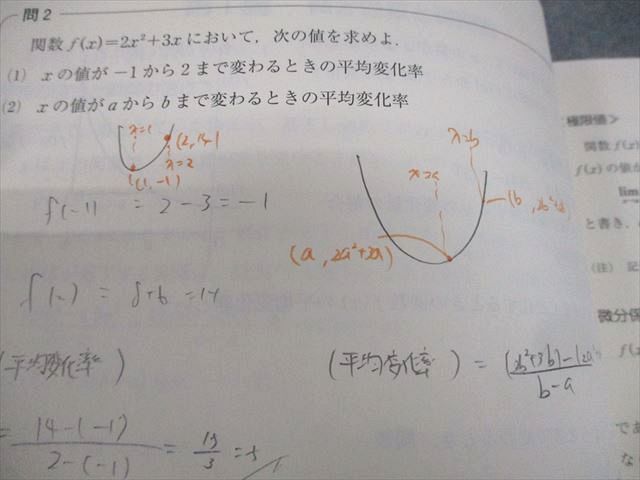 問2
関数 f(x)=2x²+3x において，次の値を求めよ．
(1) x の値が −1 から 2 まで変わるときの平均変化率
(2) x の値が a から b まで変わるときの平均変化率
極限値>
関数 f(x)
f(x) の値が
lim
と書き，
(注) 記
微分係
f(x
であ
な
x=2
x=b
f(-1) = 2-3=-1
(a, 2a²+3a)
f(2) = 8+6=14
(平均変化率)
= 14-(-1) / 2-(-1) = 15/3 =5
(平均変化率) = (2b²+3b)-(2a² / b-a